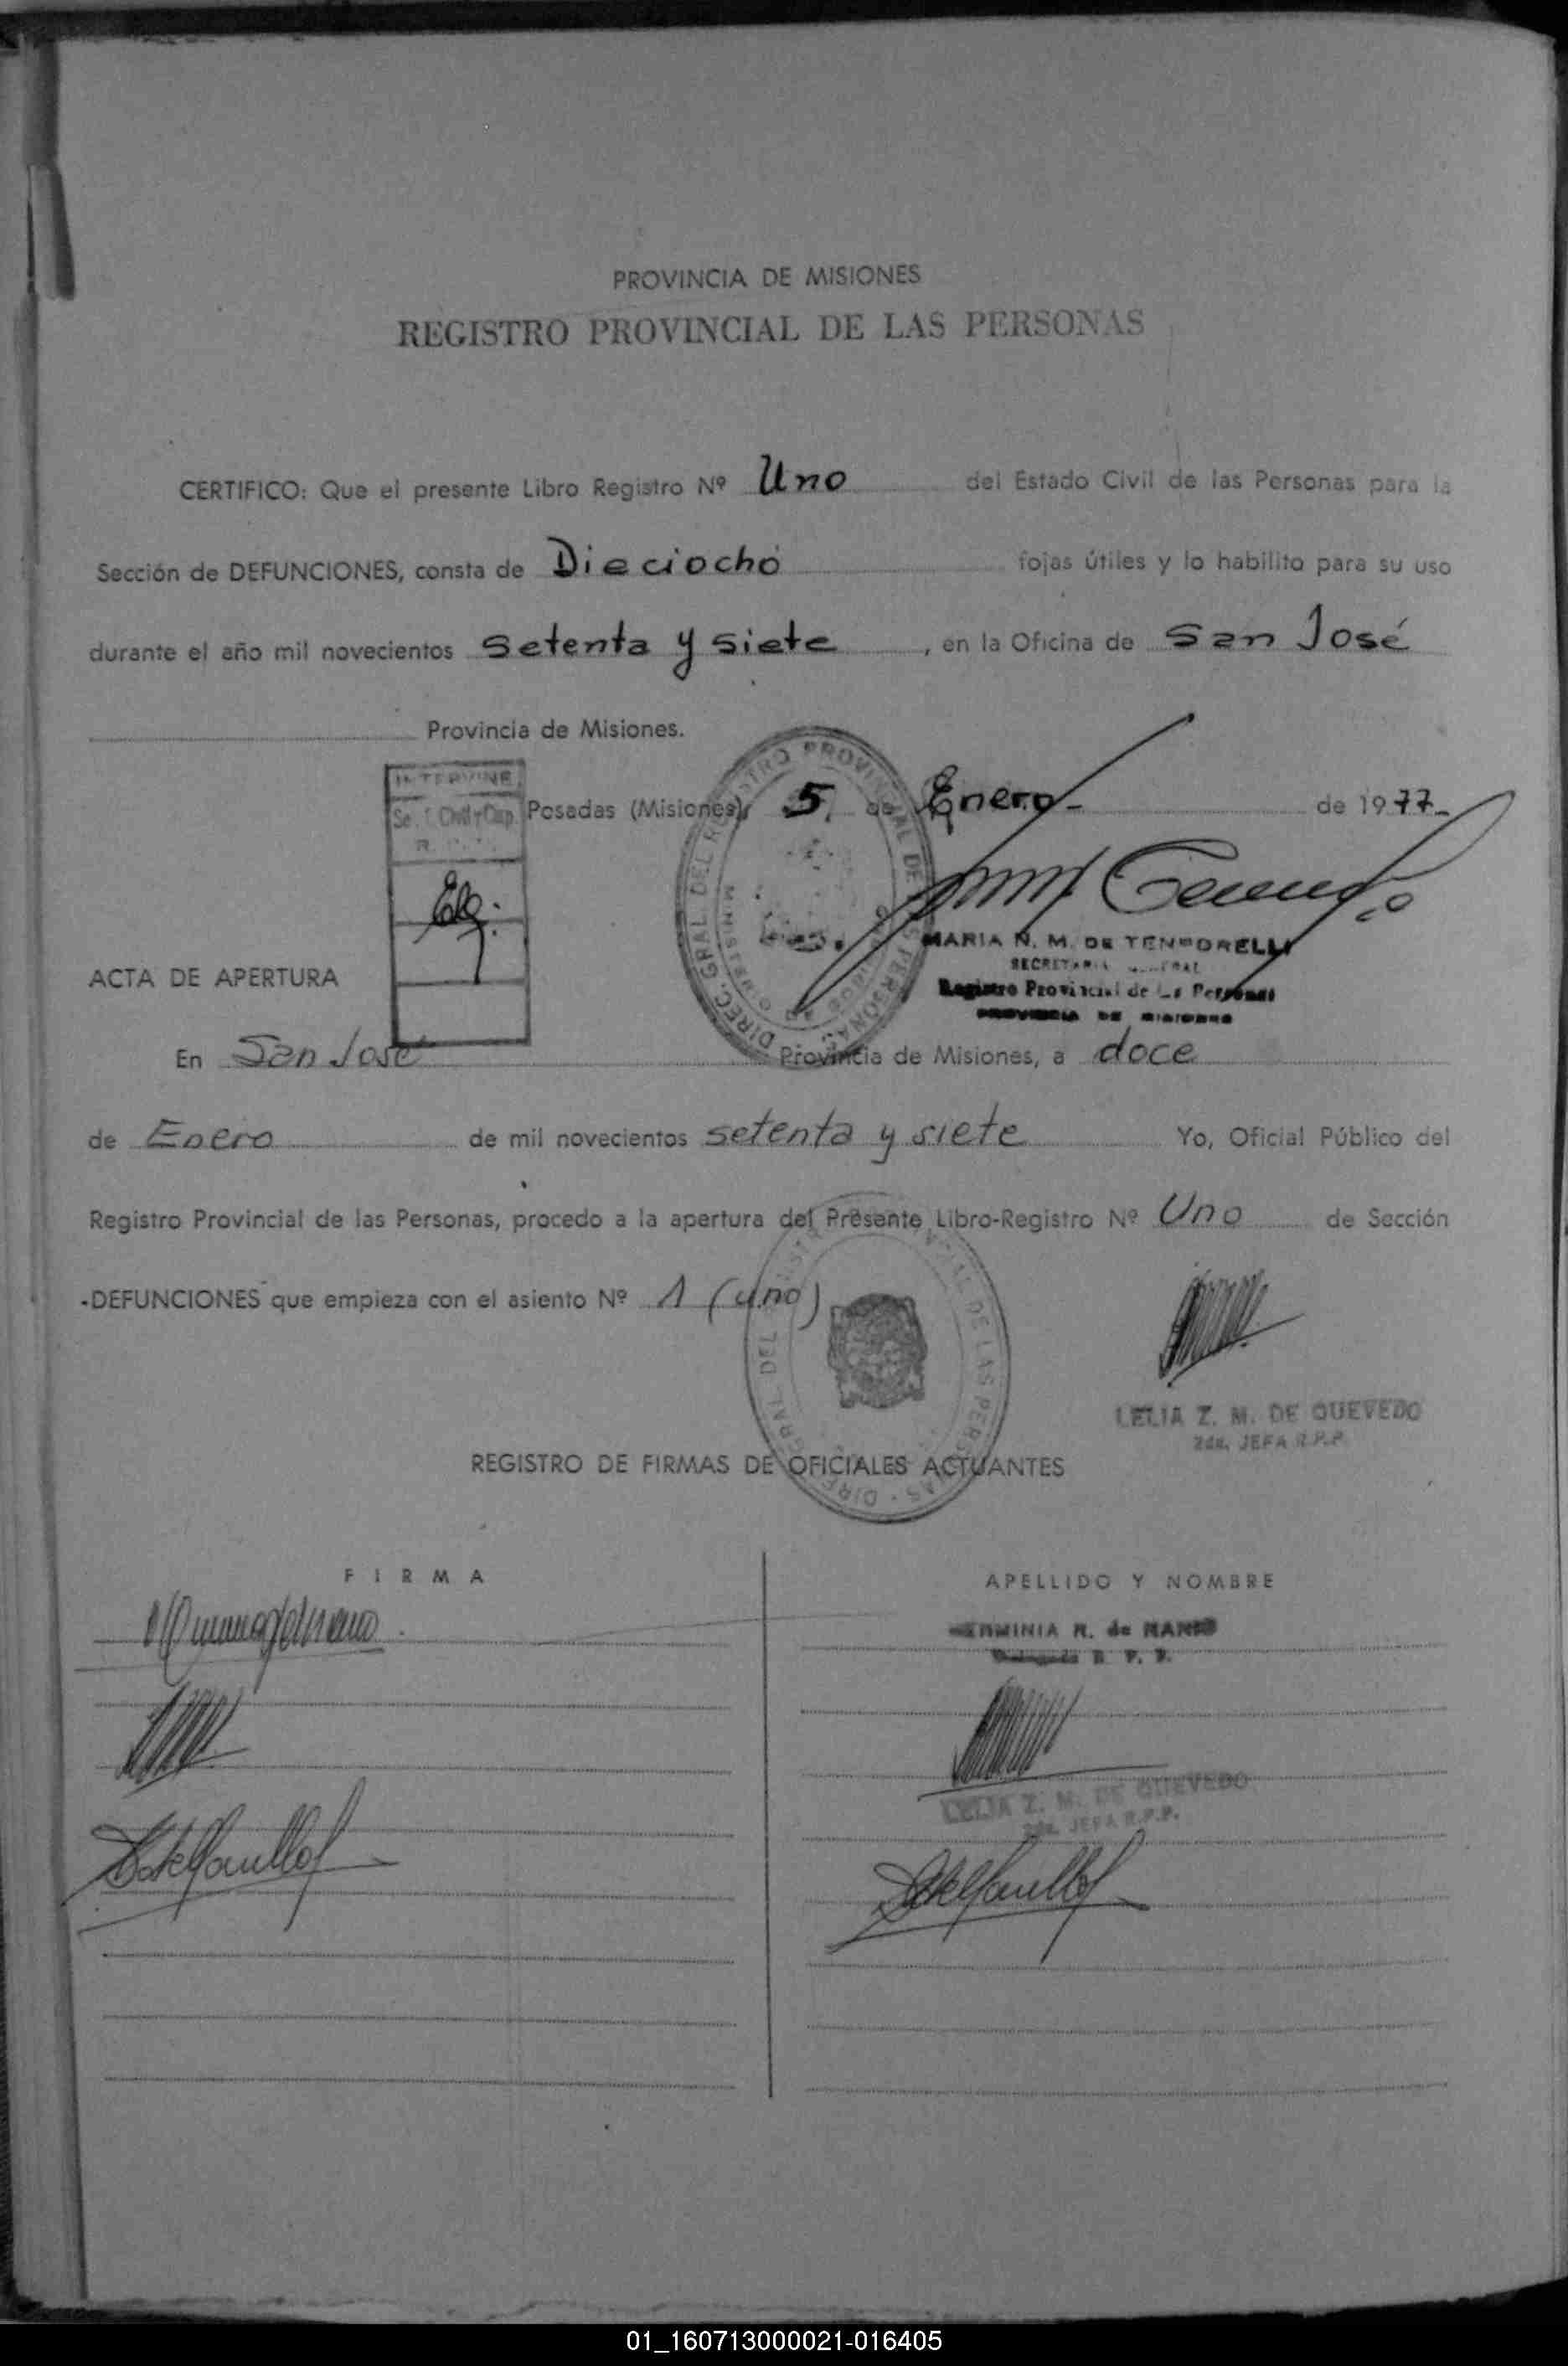 PROVINCIA DE MISIONES
REGISTRO PROVINCIAL DE LAS PERSONAS
CERTIFICO: Que el presente Libro Registro Nº Uno del Estado Civil de las Personas para la
Sección de DEFUNCIONES, consta de Dieciocho fojas útiles y lo habilito para su uso
durante el año mil novecientos setenta y siete, en la Oficina de San José
Provincia de Misiones.
INTERVINE
Posadas (Misiones), 5 de Enero de 1977
MARIA N. M. DE
SECRETARIA GENERAL
Registro Provincial de Las Personas
PROVINCIA DE MISIONES
DIREC. GRAL DEL REGISTRO PROVINCIAL DE LAS PERSONAS
ACTA DE APERTURA
En San José Provincia de Misiones, a doce
de Enero de mil novecientos setenta y siete Yo, Oficial Público del
Registro Provincial de las Personas, procedo a la apertura del Presente Libro-Registro Nº Uno de Sección
DEFUNCIONES que empieza con el asiento Nº 1 (uno)
LELIA Z. M. DE QUEVEDO
2da. JEFA R.P.P.
REGISTRO DE FIRMAS DE OFICIALES ACTUANTES
FIRMA
APELLIDO Y NOMBRE
HERMINIA R. de
R. P. P.
LELIA Z. M. DE QUEVEDO
2da. JEFA R.P.P.
01_160713000021-016405